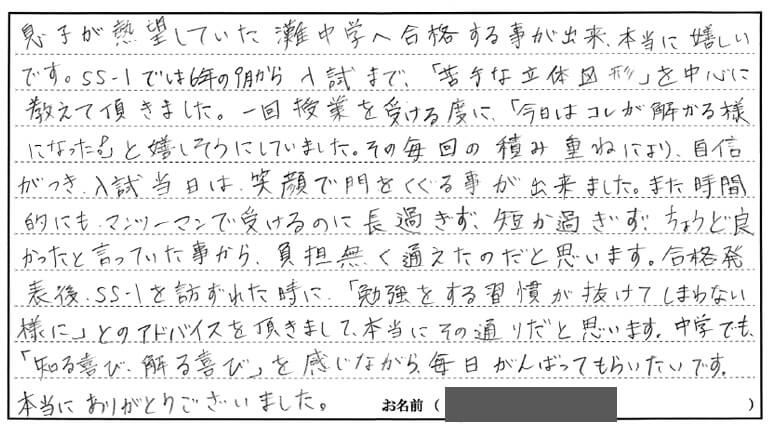 息子が熱望していた灘中学へ合格する事が出来、本当に嬉しい
です。SS-1では6年の9月から入試まで、「苦手な立体図形」を中心に
教えて頂きました。一回授業を受ける度に、「今日はコレが解かる様
になったよ」と嬉しそうにしていました。その毎回の積み重ねにより、自信
がつき、入試当日は、笑顔で門をくぐる事が出来ました。また時間
的にも、マンツーマンで受けるのに長過ぎず、短か過ぎず、ちょうど良
かったと言っていた事から、負担無く通えたのだと思います。合格発
表後、SS-1を訪ずれた時に、「勉強をする習慣が抜けてしまわない
様に」とのアドバイスを頂きまして、本当にその通りだと思います。中学でも、
「知る喜び、解る喜び」を感じながら、毎日がんばってもらいたいです。
本当にありがとうございました。 お名前( )